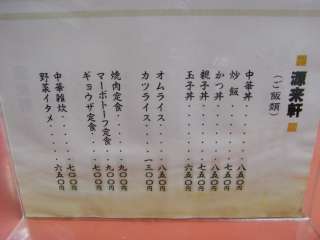 源来軒
（ご飯類）
中華丼.....八五〇円
炒飯......七五〇円
かつ丼.....八五〇円
親子丼.....七五〇円
玉子丼.....六五〇円
オムライス....八五〇円
カツライス...一三〇〇円
焼肉定食.....九〇〇円
マーボトーフ定食..九〇〇円
ギョウザ定食....七〇〇円
中華雑炊.....七〇〇円
野菜イタメ....六五〇円